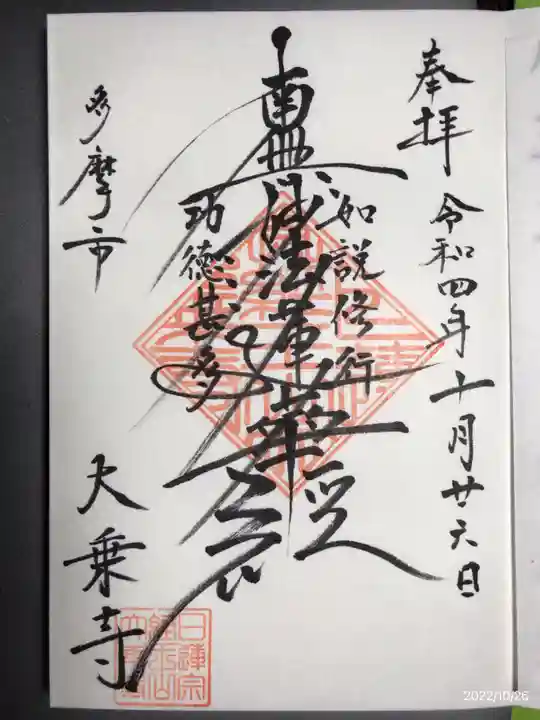 奉拝 令和四年十月廿六日
如説修行
南無妙法蓮華経
功徳甚多
多摩市 大乗寺
日蓮宗
2022/10/26